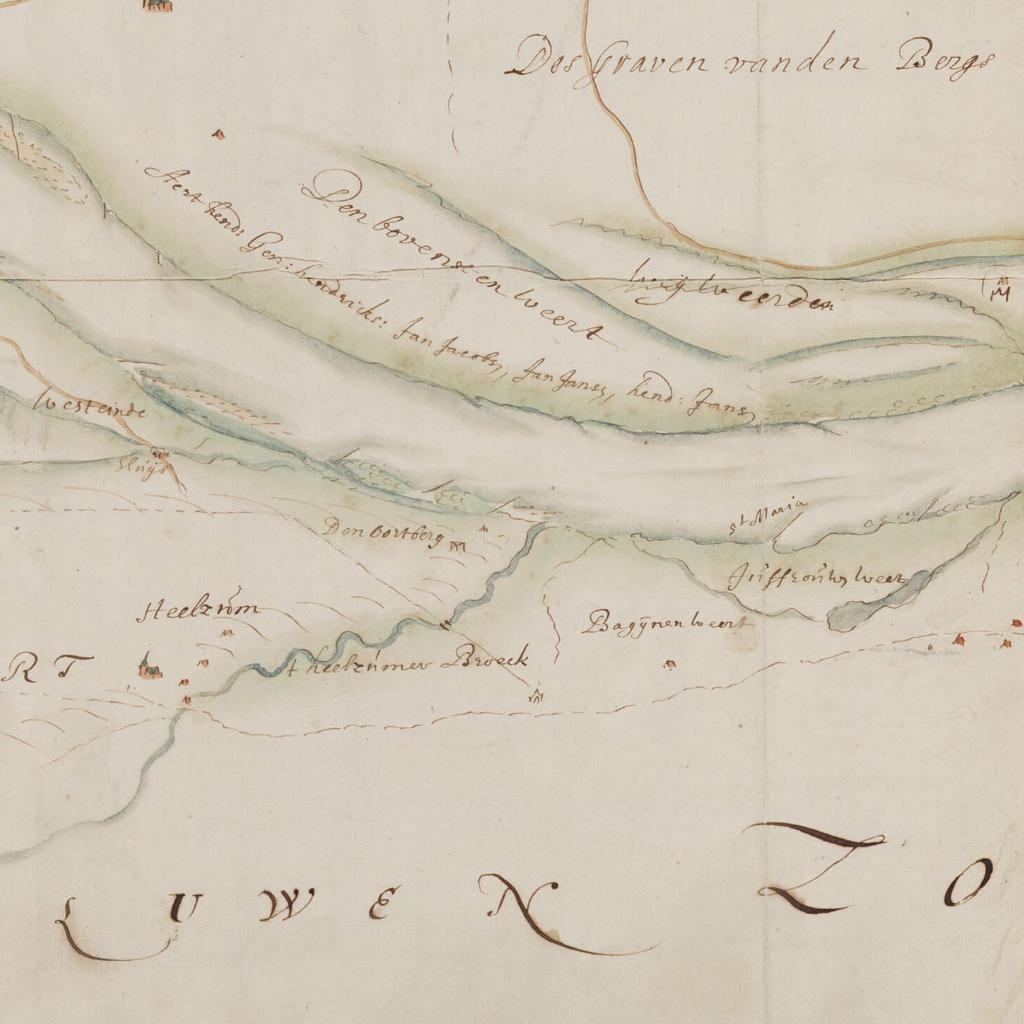 Des Graven vanden Bergs
Den bovensten weert
Aert hend: Gen: hendricks: Jan Jacobs, Jan Jans, hend: Jans,
weerden
westeinde
Sluijs
Den Oortberg
st Maria
Juffrouws weert
Heelzum
Bagijnen weert
R T
t heelzumer Broeck
L U W E N Z O